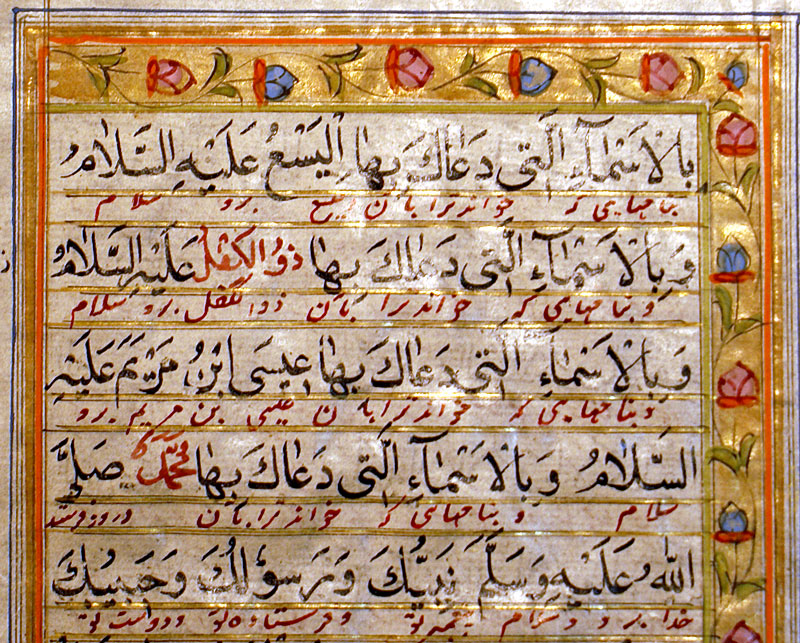 بِالْاَسْمَآءِ الَّتى دَعَاكَ بِهَا اِلْيَسَعُ عَلَيْهِ السَّلَامُ
بنامهایی که خواند ترا بآن یسع برو سلام
وَبِالْاَسْمَآءِ الَّتى دَعَاكَ بِهَا ذُو الْكِفْلِ عَلَيْهِ السَّلَامُ
و بنامهایی که خواند ترا بآن ذو الکفل برو سلام
وَبِالْاَسْمَآءِ الَّتى دَعَاكَ بِهَا عِيسَى ابْنُ مَرْيَمَ عَلَيْهِ
و بنامهایی که خواند ترا بآن عیسی بن مریم برو
السَّلَامُ وَبِالْاَسْمَآءِ الَّتى دَعَاكَ بِهَا مُحَمَّدٌ صَلَّى
سلام و بنامهایی که خواند ترا بآن درود فرستد
اللهُ عَلَيْهِ وَسَلَّمَ نَبِيُّكَ وَرَسُولُكَ وَحَبِيبُكَ
خدا برو و سلام پیغمبر تو و فرستاده تو و دوست تو